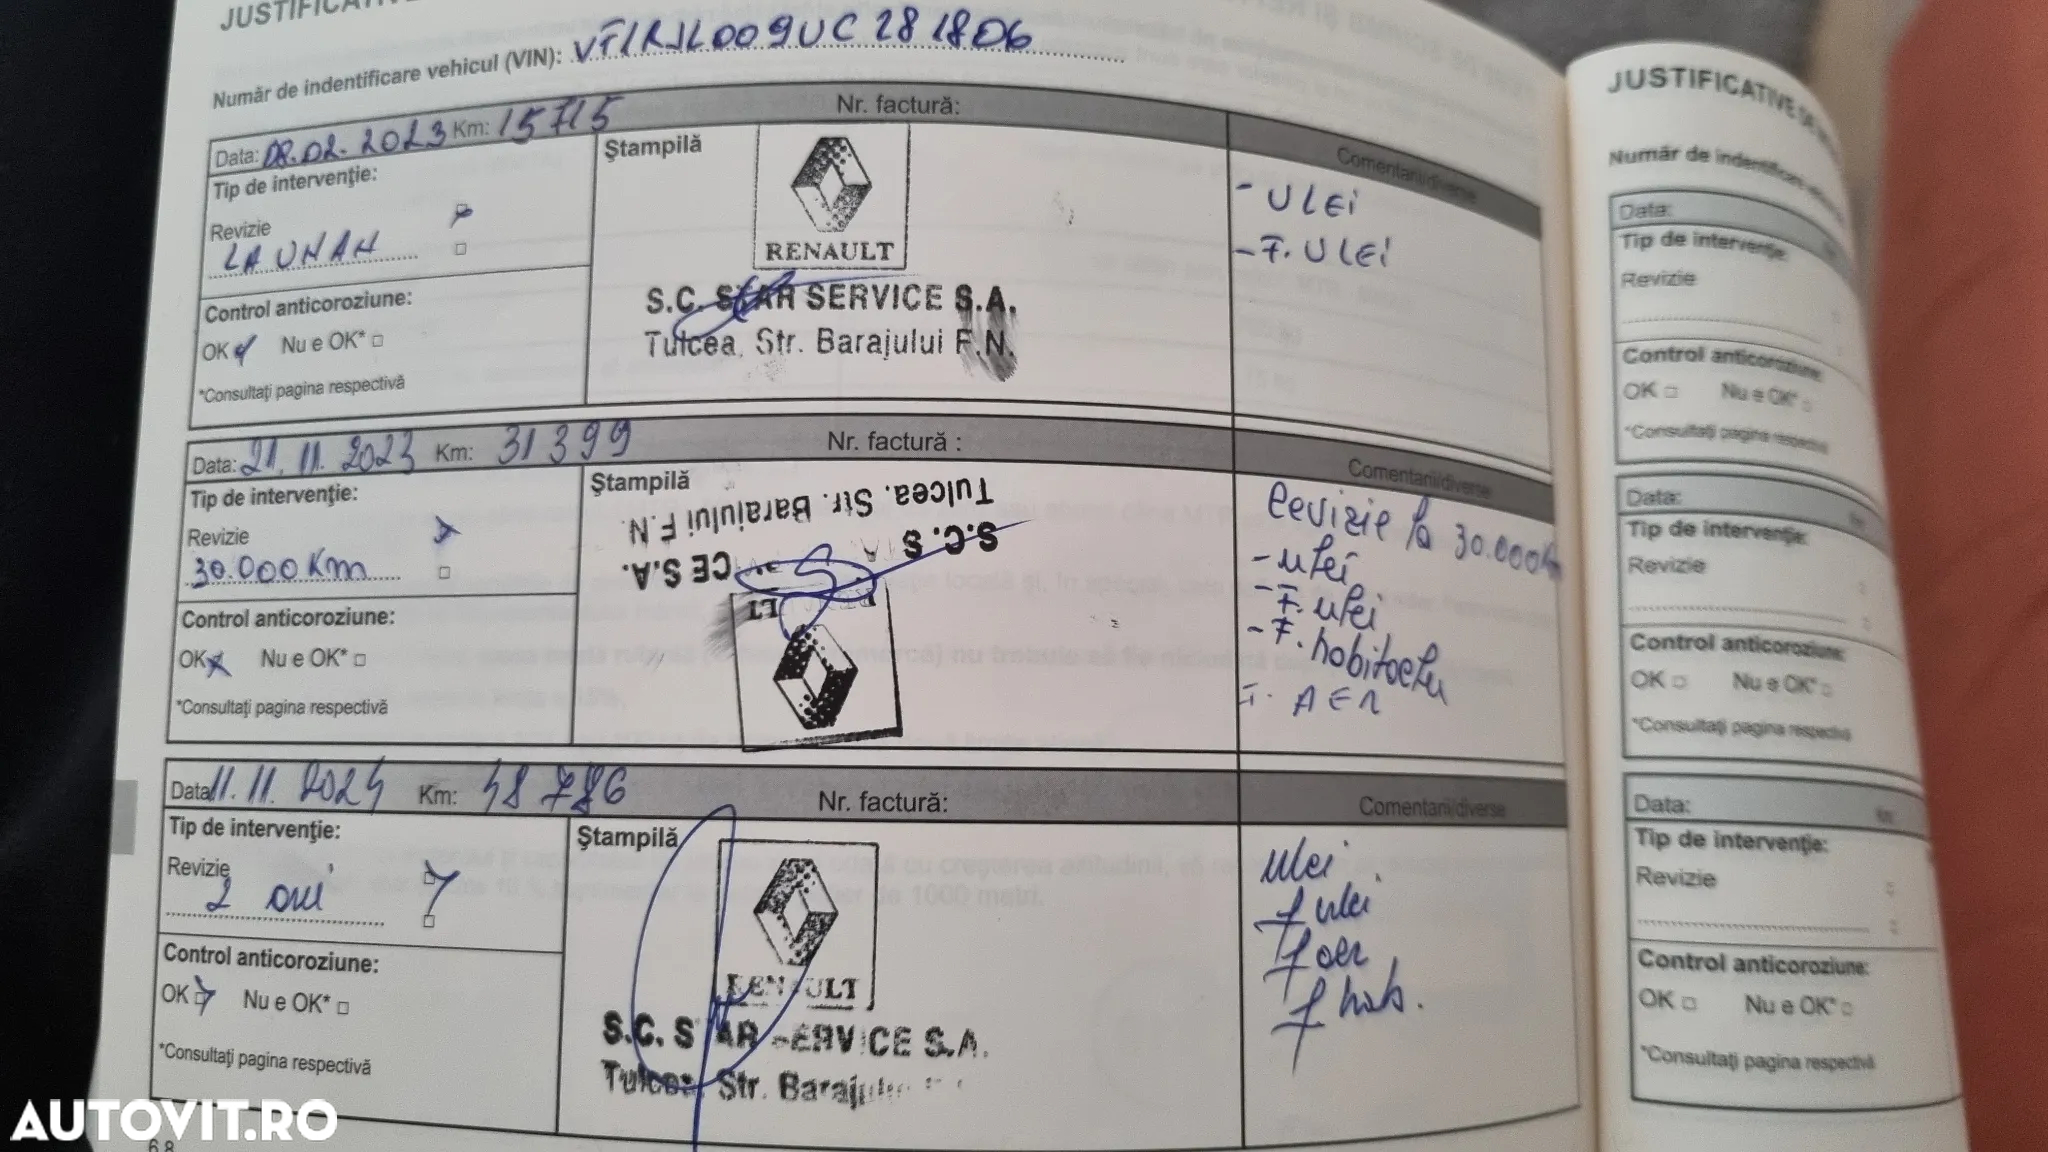 JUSTIFICATIVE
Număr de indentificare vehicul (VIN): VF1RJL009UC281806
Data: 08.02.2023 Km: 15715 Nr. factură:
Comentarii/diverse
Tip de intervenţie:
Revizie
LA UN AN
Control anticoroziune:
OK Nu e OK*
*Consultaţi pagina respectivă
Ştampilă
RENAULT
S.C. STAR SERVICE S.A.
Tulcea, Str. Barajului F.N.
- ULEI
- F. ULEI
Data: 21.11.2023 Km: 31399 Nr. factură :
Comentarii/diverse
Tip de intervenţie:
Revizie
30.000 Km
Control anticoroziune:
OK Nu e OK*
*Consultaţi pagina respectivă
Ştampilă
Tulcea, Str. Barajului F.N.
S.C. S CE S.A.
LT
Revizie la 30.000
- ulei
- F. ulei
- F. habitaclu
F. AER
Data 11.11.2024 Km: 48786 Nr. factură:
Comentarii/diverse
Tip de intervenţie:
Revizie
2 ani
Control anticoroziune:
OK Nu e OK*
*Consultaţi pagina respectivă
Ştampilă
RENAULT
S.C. STAR SERVICE S.A.
Tulcea, Str. Barajului
ulei
f ulei
f aer
f hab.
68
JUSTIFICATIVE DE
Număr de indentificare
Data:
Tip de intervenţie:
Revizie
Control anticoroziune:
OK Nu e OK*
*Consultaţi pagina respectivă
Data:
Tip de intervenţie:
Revizie
Control anticoroziune:
OK Nu e OK*
*Consultaţi pagina respectivă
Data:
Tip de intervenţie:
Revizie
Control anticoroziune:
OK Nu e OK*
*Consultaţi pagina respectivă
AUTOVIT.RO